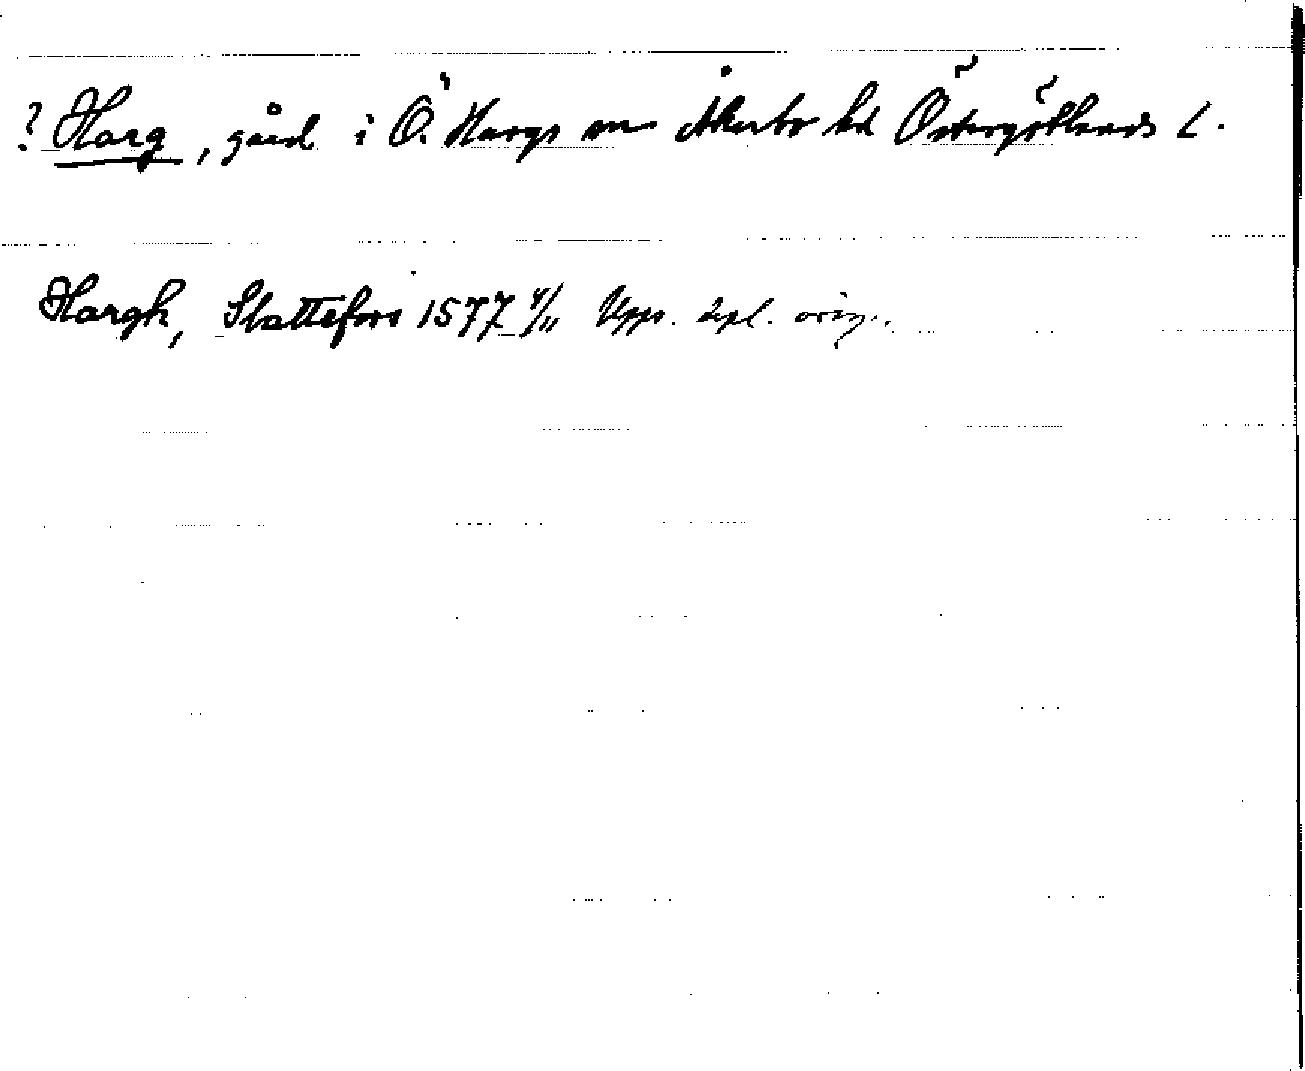 ? Harg, gård i Ö. Hargs sn Åkerbo hd Östergötlands L.
Hargk, Skattefors 1577 4/11 Upps. dipl. orig.